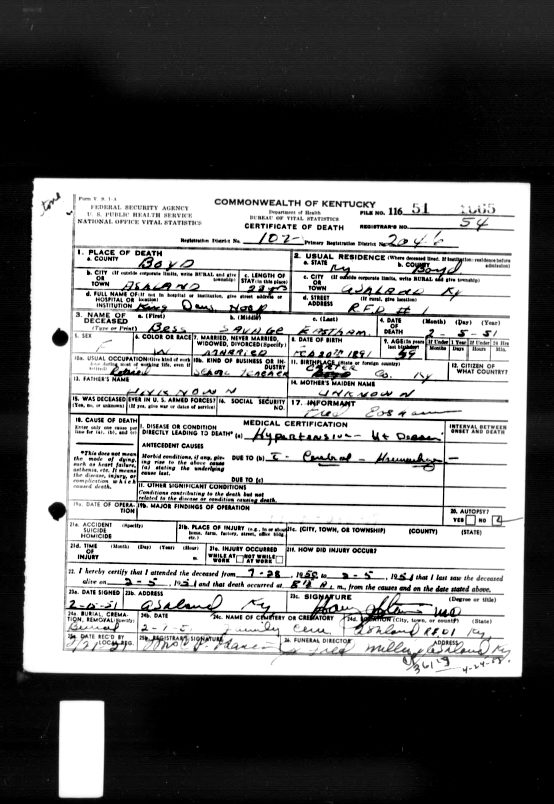 Form V. S. 1-A
FEDERAL SECURITY AGENCY
U. S. PUBLIC HEALTH SERVICE
NATIONAL OFFICE VITAL STATISTICS
COMMONWEALTH OF KENTUCKY
Department of Health
BUREAU OF VITAL STATISTICS
CERTIFICATE OF DEATH
FILE NO. 116 51
REGISTRAR'S NO. 54
Registration District No. 102 Primary Registration District No.
1. PLACE OF DEATH
a. COUNTY Boyd
2. USUAL RESIDENCE (Where deceased lived. If institution: residence before admission)
a. STATE Ky b. COUNTY Boyd
b. CITY (If outside corporate limits, write RURAL and give township) OR TOWN ASHLAND
c. LENGTH OF STAY (in this place)
c. CITY (If outside corporate limits, write RURAL and give township) OR TOWN ASHLAND Ky
d. FULL NAME OF (If not in hospital or institution, give street address or location) HOSPITAL OR INSTITUTION
d. STREET ADDRESS (If rural, give location) RFD #
3. NAME OF DECEASED (Type or Print)
a. (First) Bess b. (Middle) SAVAGE c. (Last) EASTHAM
4. DATE OF DEATH (Month) (Day) (Year) 2-5-51
5. SEX F
6. COLOR OR RACE W
7. MARRIED, NEVER MARRIED, WIDOWED, DIVORCED (Specify) MARRIED
8. DATE OF BIRTH Feb 20th 1891
9. AGE (In years last birthday) 59
If Under 1 Year Months Days If Under 24 Hrs Hours Min.
10a. USUAL OCCUPATION (Give kind of work done during most of working life, even if retired) Retired
10b. KIND OF BUSINESS OR INDUSTRY School Teacher
11. BIRTHPLACE (State or foreign country) CARTER Co. Ky
12. CITIZEN OF WHAT COUNTRY?
13. FATHER'S NAME UNKNOWN
14. MOTHER'S MAIDEN NAME UNKNOWN
15. WAS DECEASED EVER IN U. S. ARMED FORCES? (Yes, no, or unknown) (If yes, give war or dates of service)
16. SOCIAL SECURITY NO.
17. INFORMANT Fred Eastham
18. CAUSE OF DEATH
Enter only one cause per line for (a), (b), and (c)
MEDICAL CERTIFICATION
INTERVAL BETWEEN ONSET AND DEATH
I. DISEASE OR CONDITION DIRECTLY LEADING TO DEATH* (a) Hypertensive Ht Disease
*This does not mean the mode of dying, such as heart failure, asthenia, etc. It means the disease, injury, or complication which caused death.
ANTECEDENT CAUSES
Morbid conditions, if any, giving rise to the above cause (a) stating the underlying cause last.
DUE TO (b) Cerebral Hemorrhage
DUE TO (c)
II. OTHER SIGNIFICANT CONDITIONS
Conditions contributing to the death but not related to the disease or condition causing death.
19a. DATE OF OPERATION
19b. MAJOR FINDINGS OF OPERATION
20. AUTOPSY?
YES NO
21a. ACCIDENT SUICIDE HOMICIDE (Specify)
21b. PLACE OF INJURY (e.g., in or about home, farm, factory, street, office bldg., etc.)
21c. (CITY, TOWN, OR TOWNSHIP) (COUNTY) (STATE)
21d. TIME OF INJURY (Month) (Day) (Year) (Hour) m.
21e. INJURY OCCURRED WHILE AT WORK NOT WHILE AT WORK
21f. HOW DID INJURY OCCUR?
22. I hereby certify that I attended the deceased from 7-28, 1950, to 2-5, 1951 that I last saw the deceased
alive on 2-5, 1951 and that death occurred at m., from the causes and on the date stated above.
23a. DATE SIGNED
23b. ADDRESS Ashland Ky
23c. SIGNATURE (Degree or title)
24a. BURIAL, CREMATION, REMOVAL (Specify) Burial
24b. DATE
24c. NAME OF CEMETERY OR CREMATORY Family Cem
24d. LOCATION (City, town, or county) (State) Ashland Rt 01 Ky.
25a. DATE REC'D BY LOCAL REG.
25b. REGISTRAR'S SIGNATURE
26. FUNERAL DIRECTOR ADDRESS
Miller Ashland Ky